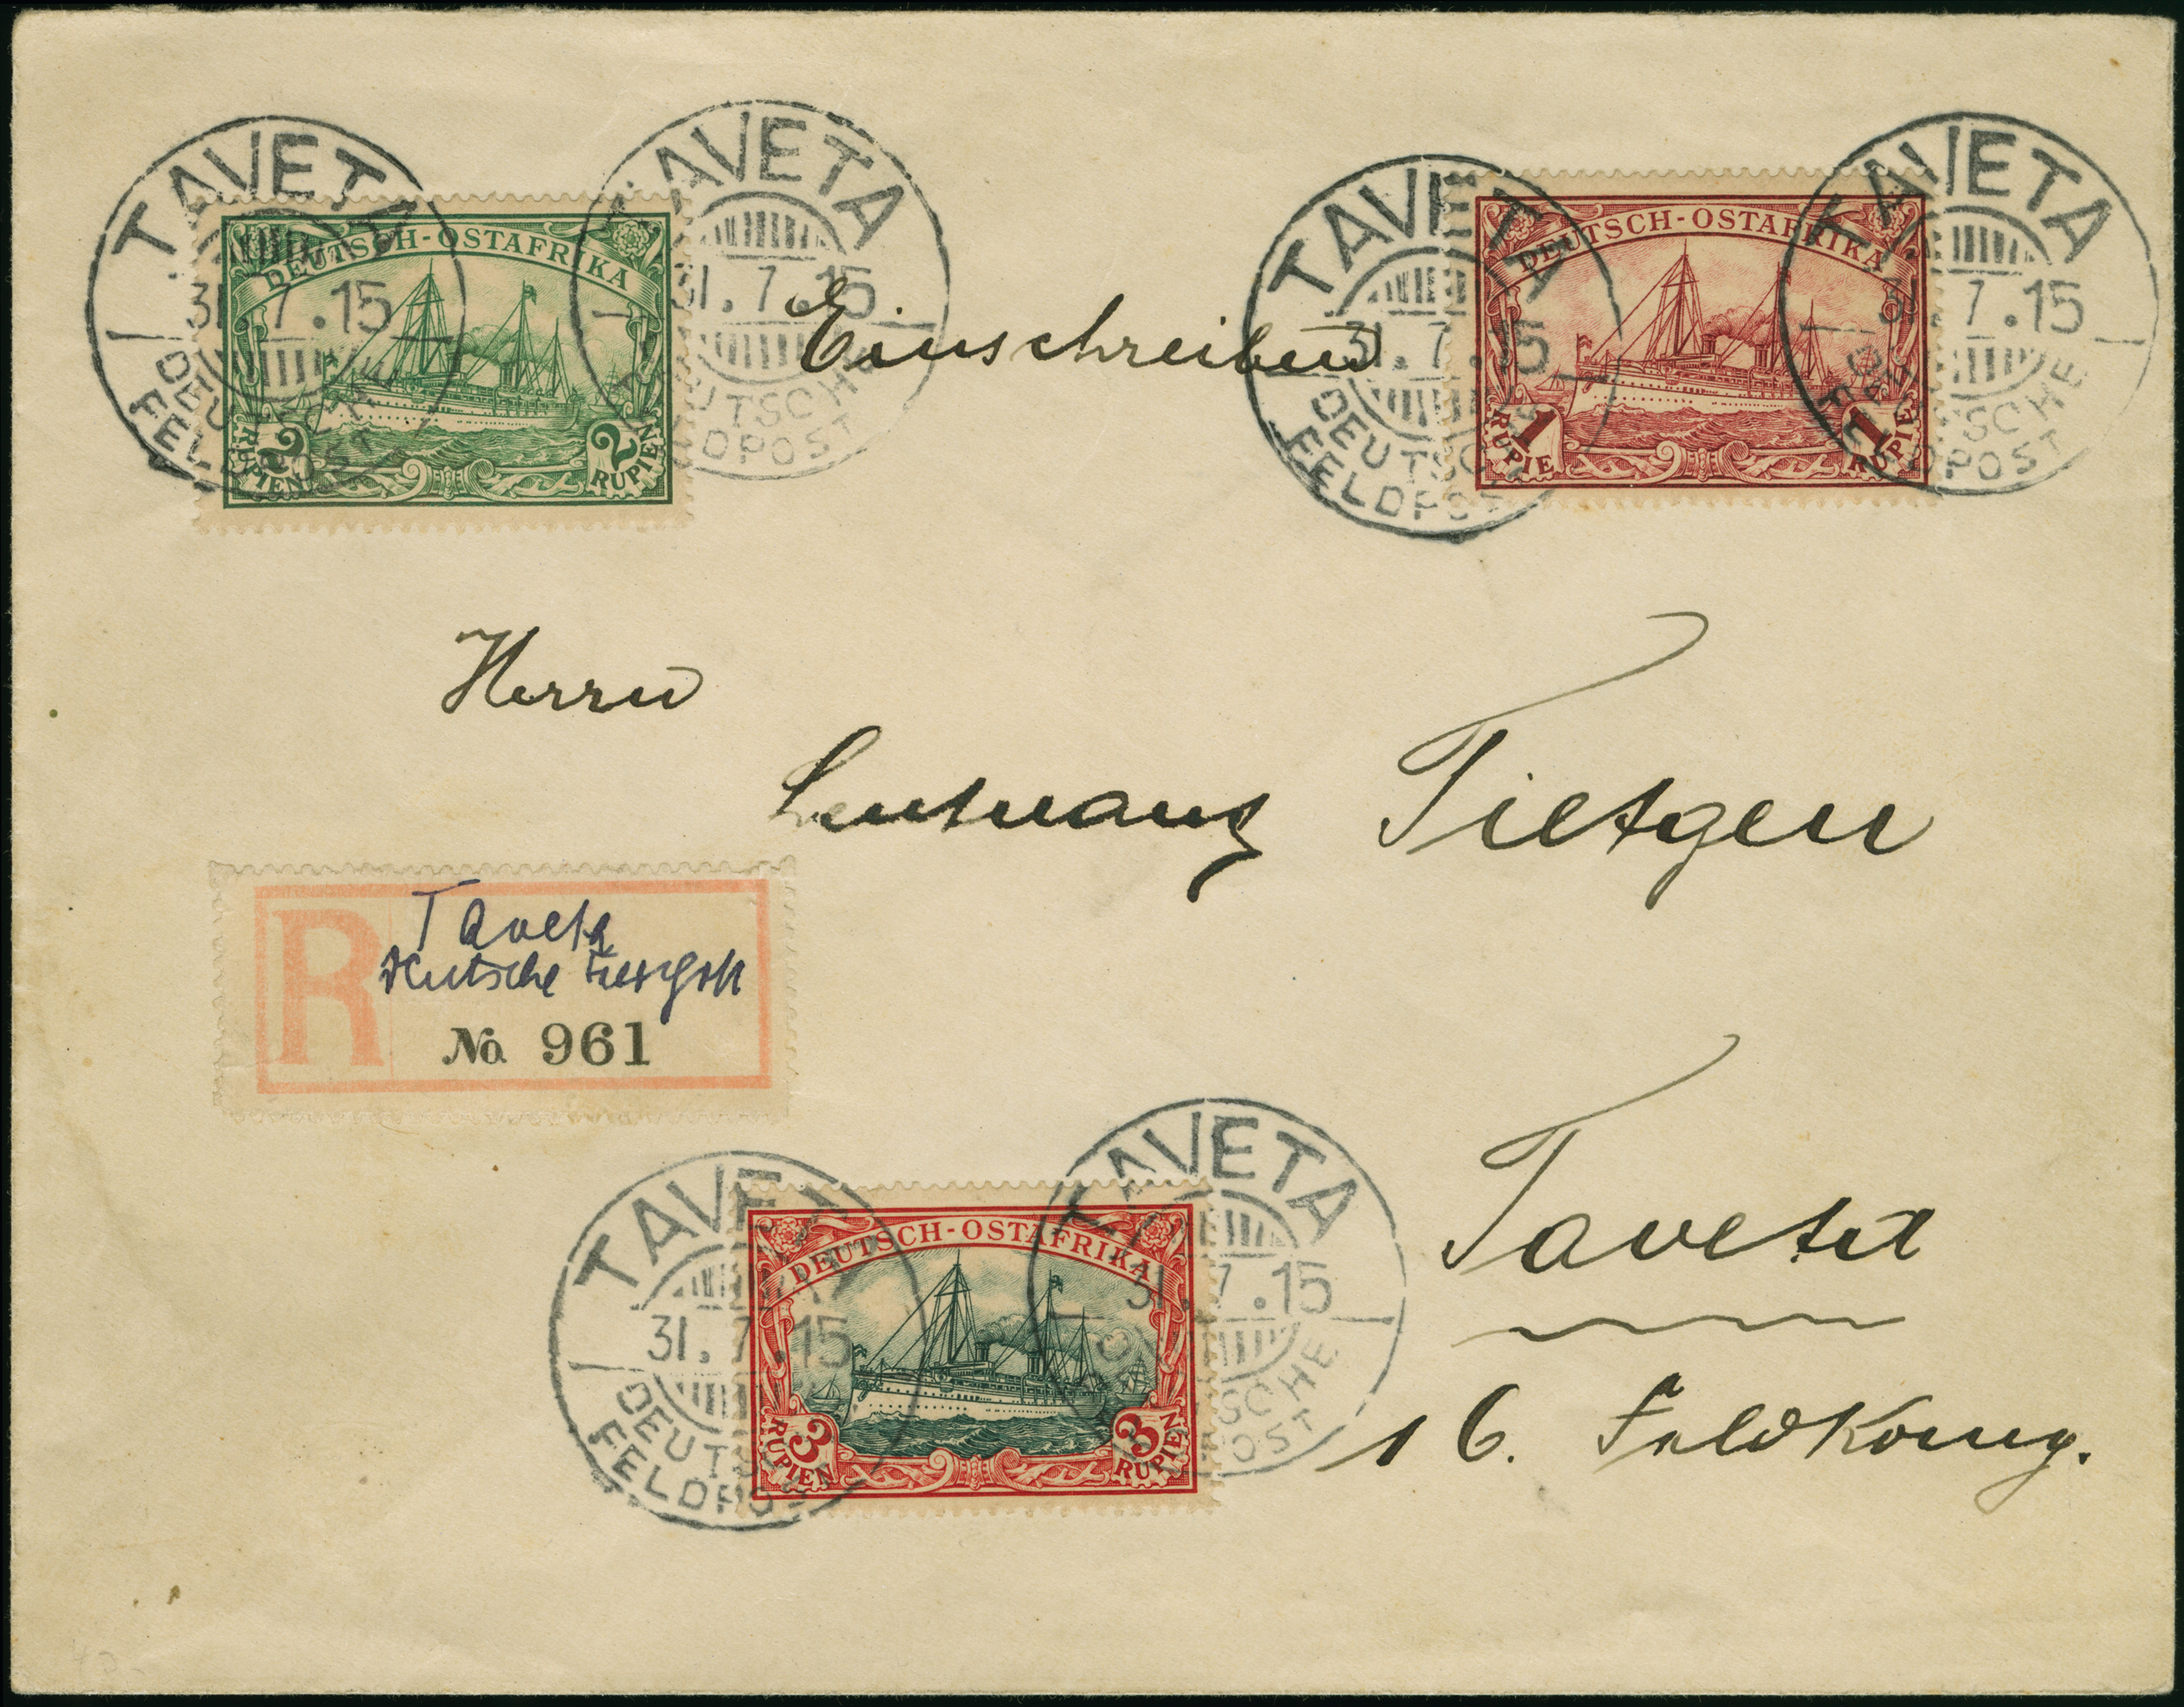 TAVETA
31.7.15
DEUTSCHE
FELDPOST
DEUTSCH-OSTAFRIKA
2 RUPIEN
2 RUPIEN
TAVETA
31.7.15
DEUTSCHE
FELDPOST
Einschreiben
TAVETA
31.7.15
DEUTSCHE
FELDPOST
DEUTSCH-OSTAFRIKA
1 RUPIE
1 RUPIE
TAVETA
31.7.15
DEUTSCHE
FELDPOST
Herrn
Leutnant Tietgen
R
Taveta
Deutsche Feldpost
No. 961
Taveta
16. Feldkomp.
TAVETA
31.7.15
DEUTSCHE
FELDPOST
DEUTSCH-OSTAFRIKA
3 RUPIEN
3 RUPIEN
TAVETA
31.7.15
DEUTSCHE
FELDPOST